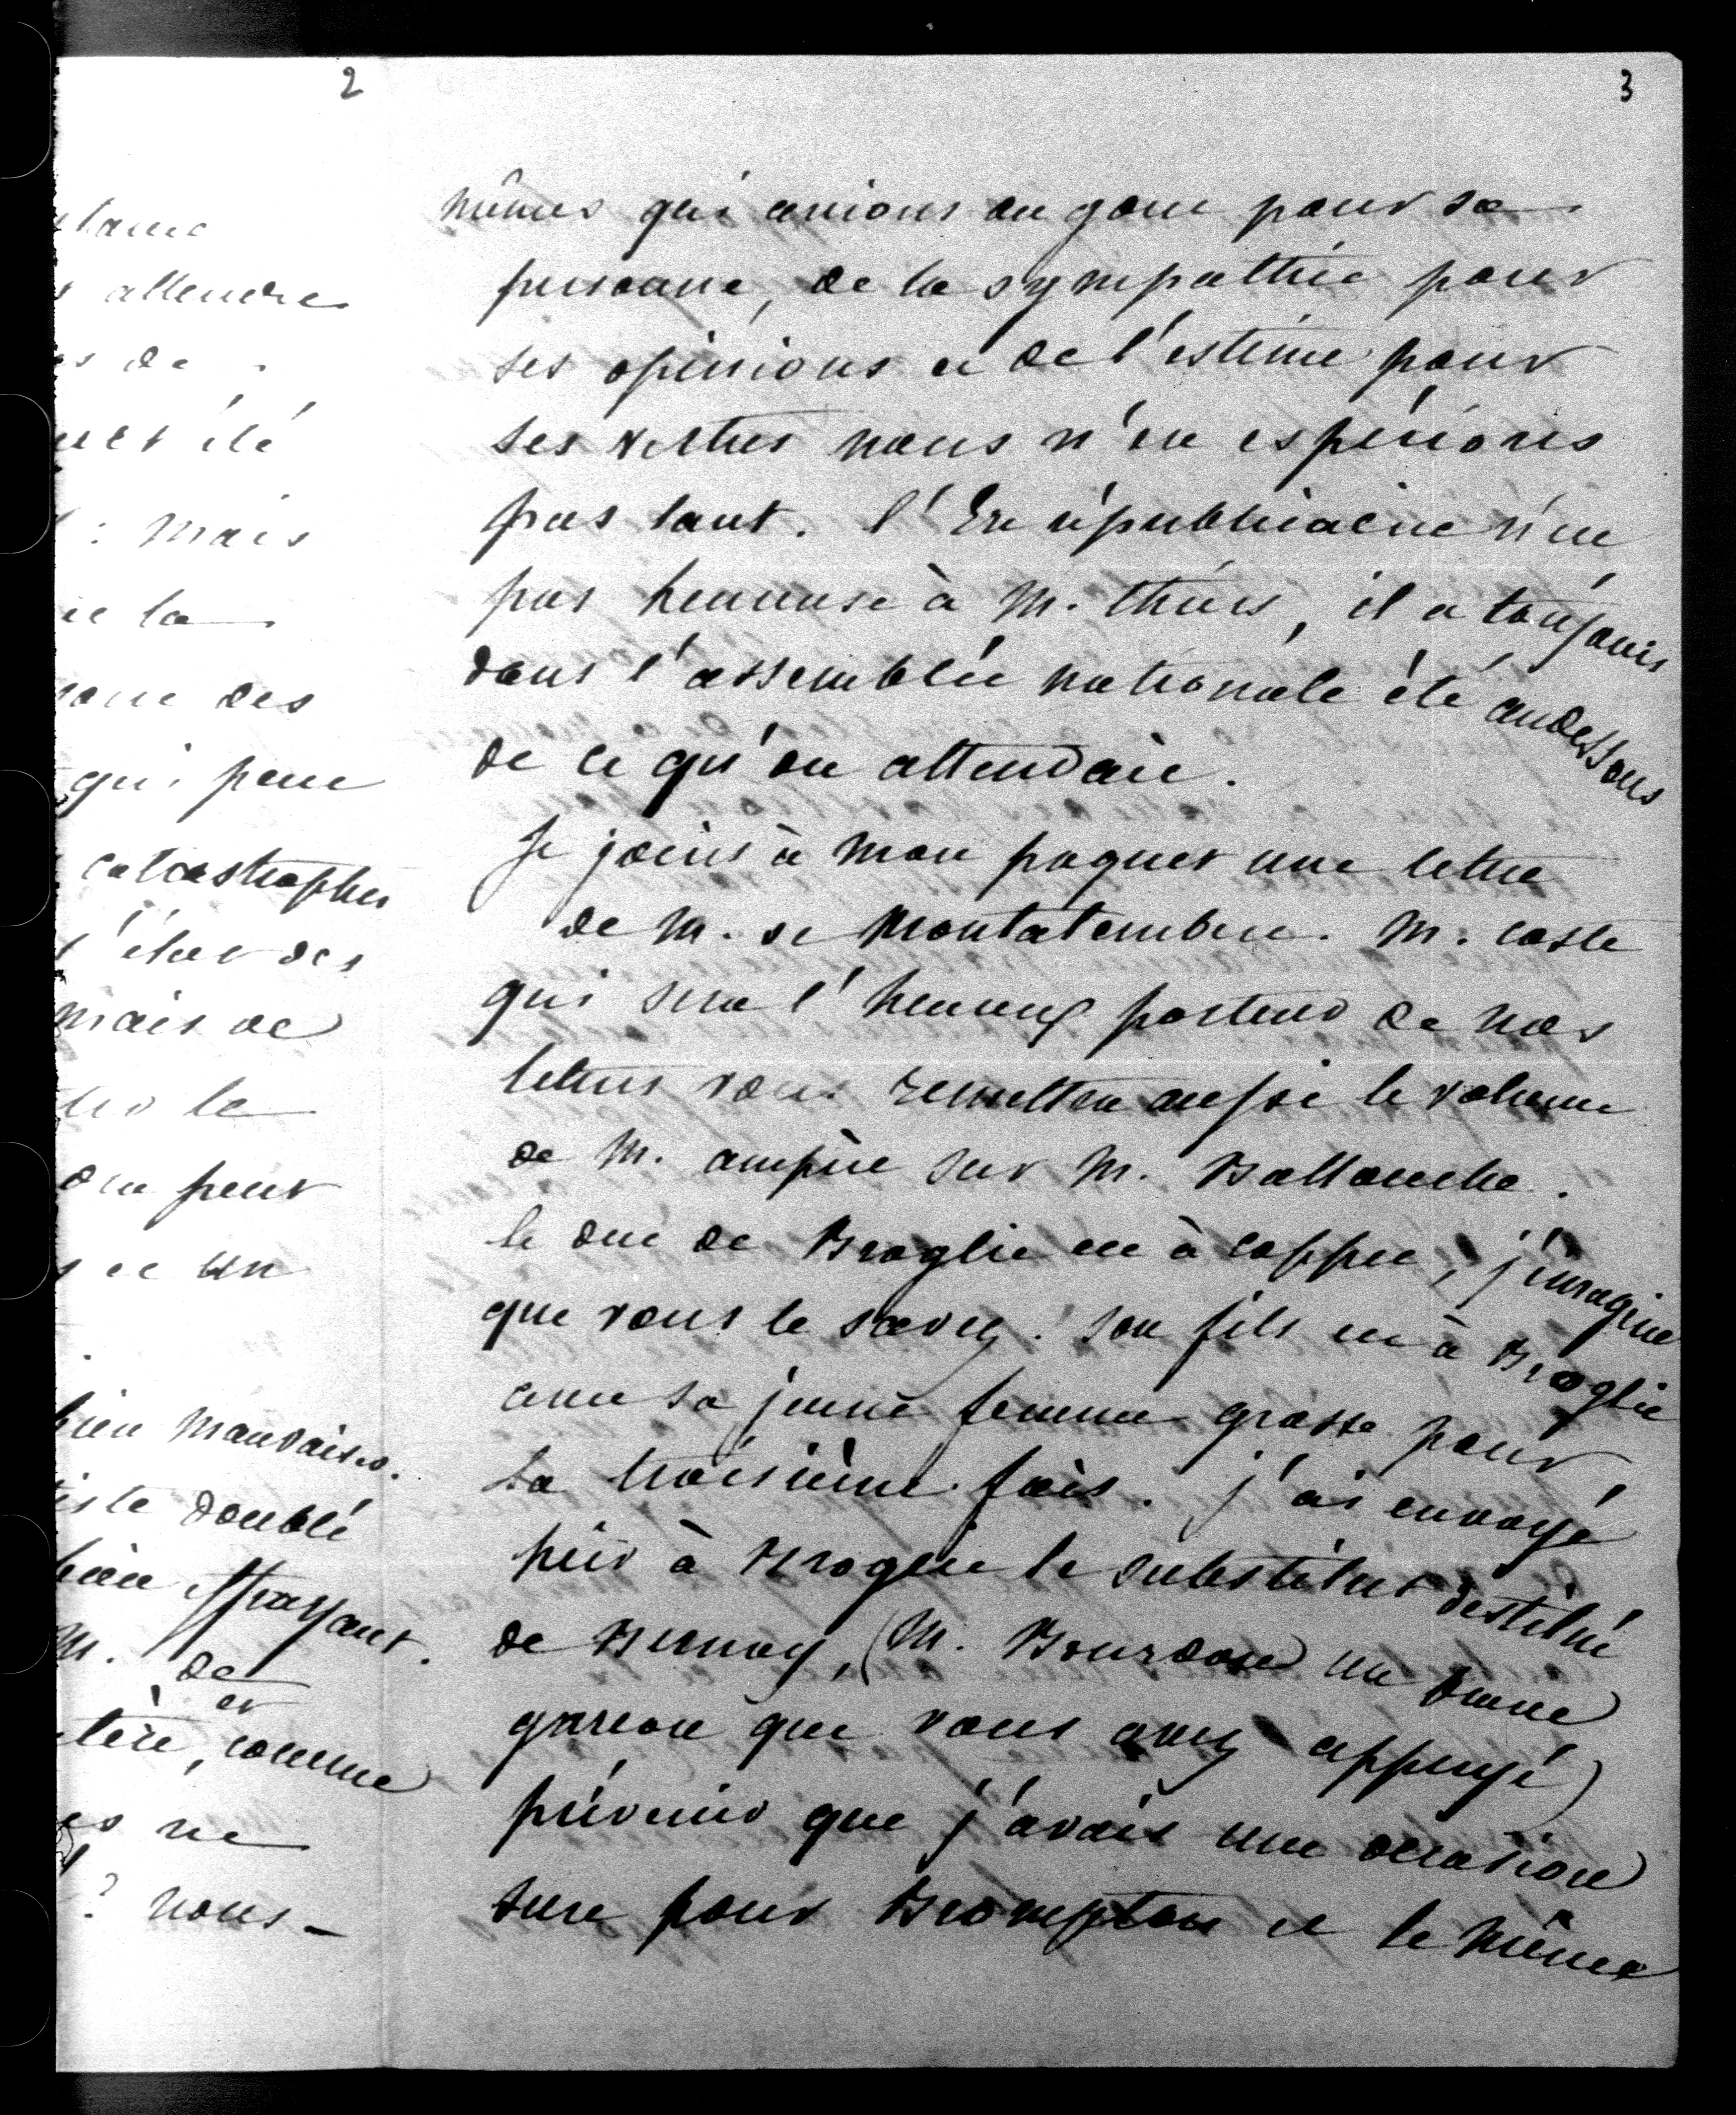 2
tame
attendre
es de
été
: mais
et la
des
qui peut
catastrophes
l'état des
mais de
le
on peut
et un
bien mauvaises.
iste doublé
bien effrayant.
M. de
et
tère, comme
es ne
? nous-
3
mêmes qui avions du gout pour sa
personne, de la sympathie pour
ses opinions et de l'estime pour
ses vertus nous n'en espérions
pas tant. l'Ere républicaine n'est
pas heureuse à M. thiers, il a toujours
dans l'assemblée nationale été audessous
de ce qu'on attendait.
Je joins à mon paquet une lettre
de M. de Montalembert. M. coste
qui sera l'heureux porteur de nos
lettres vous remettra aussi le volume
de M. ampère sur M. Ballanche.
le duc de Broglie est à coppet, j'imagine
que vous le savez. Son fils est à Broglie
avec sa jeune femme grosse pour
la troisième fois. j'ai envoyé
hier à Broglie le substitut destitué
de Bernay, (M. Bourdon un brave
garcon que vous avez appuyé)
prévenir que j'avais une occasion
sure pour Brompton et le même